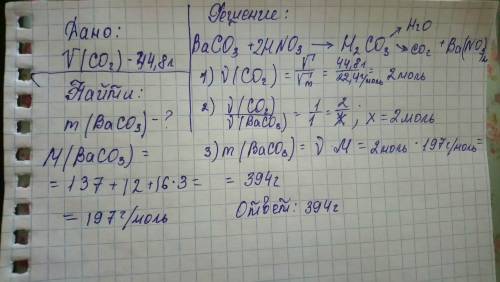 Дано:
V(CO₂) - 44,8л
Найти:
m(BaCO₃) - ?
M(BaCO₃) =
= 137 + 12 + 16·3 =
= 197г/моль
Решение:
BaCO₃ + 2HNO₃ → H₂CO₃ ↗H₂O ↘CO₂ + Ba(NO₃)₂
1) ν(CO₂) = V/Vm = 44,8л/22,4г/моль = 2моль
2) ν(CO₂)/ν(BaCO₃) = 1/1 = 2/x ; x = 2моль
3) m(BaCO₃) = ν M = 2моль · 197г/моль =
= 394г
Ответ: 394г